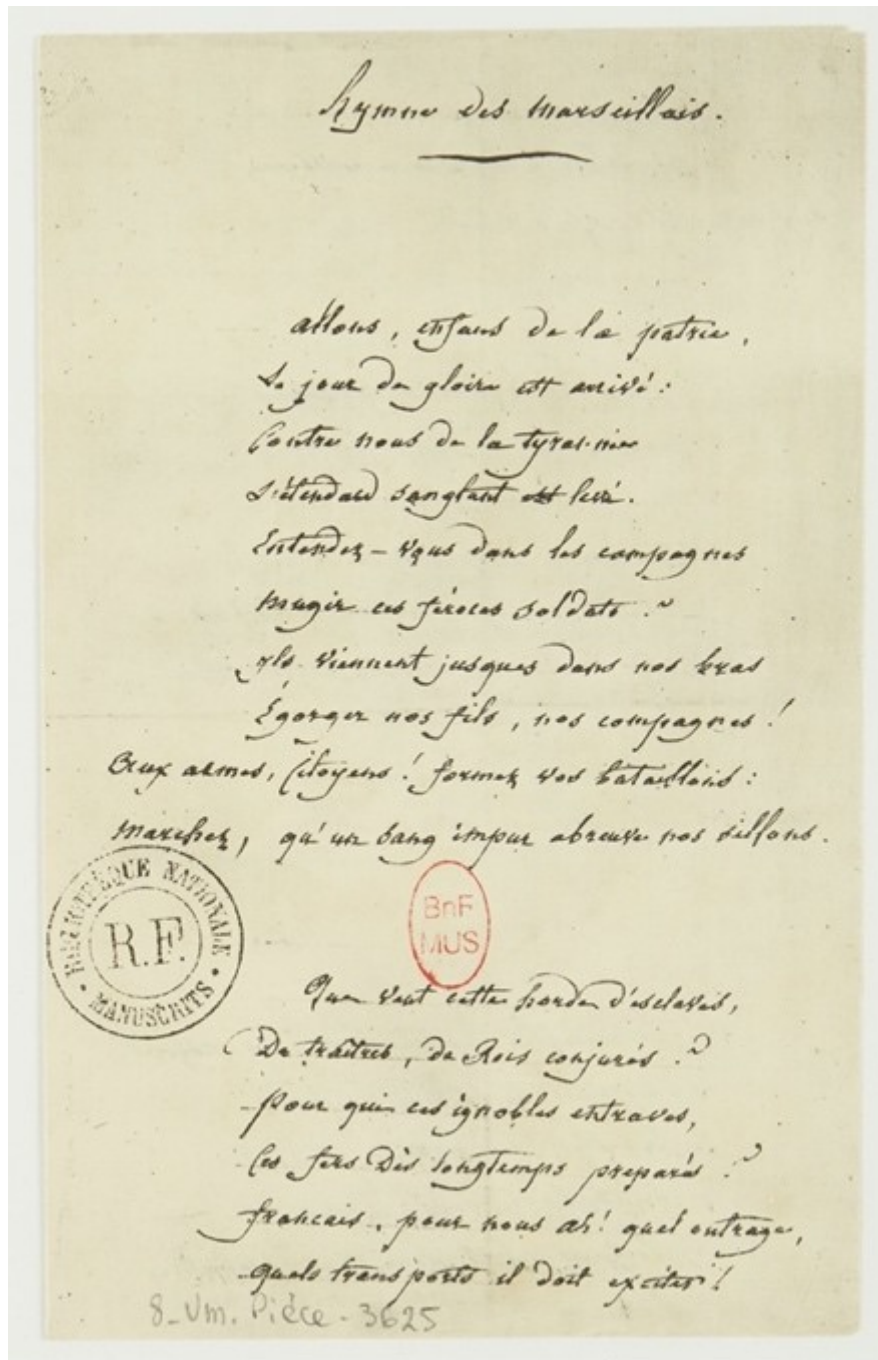 hymne des marseillais.
allons, enfans de la patrie,
Le jour de gloire est arrivé :
Contre nous de la tyrannie
L'étendard sanglant est levé.
Entendez-vous dans les campagnes
mugir ces féroces soldats ?
ils viennent jusques dans nos bras
Égorger nos fils, nos compagnes !
Aux armes, Citoyens ! formez vos bataillons :
marchez, qu'un sang impur abreuve nos sillons.
BIBLIOTHÈQUE NATIONALE
R.F.
MANUSCRITS
BnF
MUS
Que veut cette horde d'esclaves,
De traîtres, de Rois conjurés ?
Pour qui ces ignobles entraves,
Ces fers Dès longtemps preparés ?
français, pour nous ah! quel outrage,
quels transports il doit exciter !
8-Vm. Pièce-3625